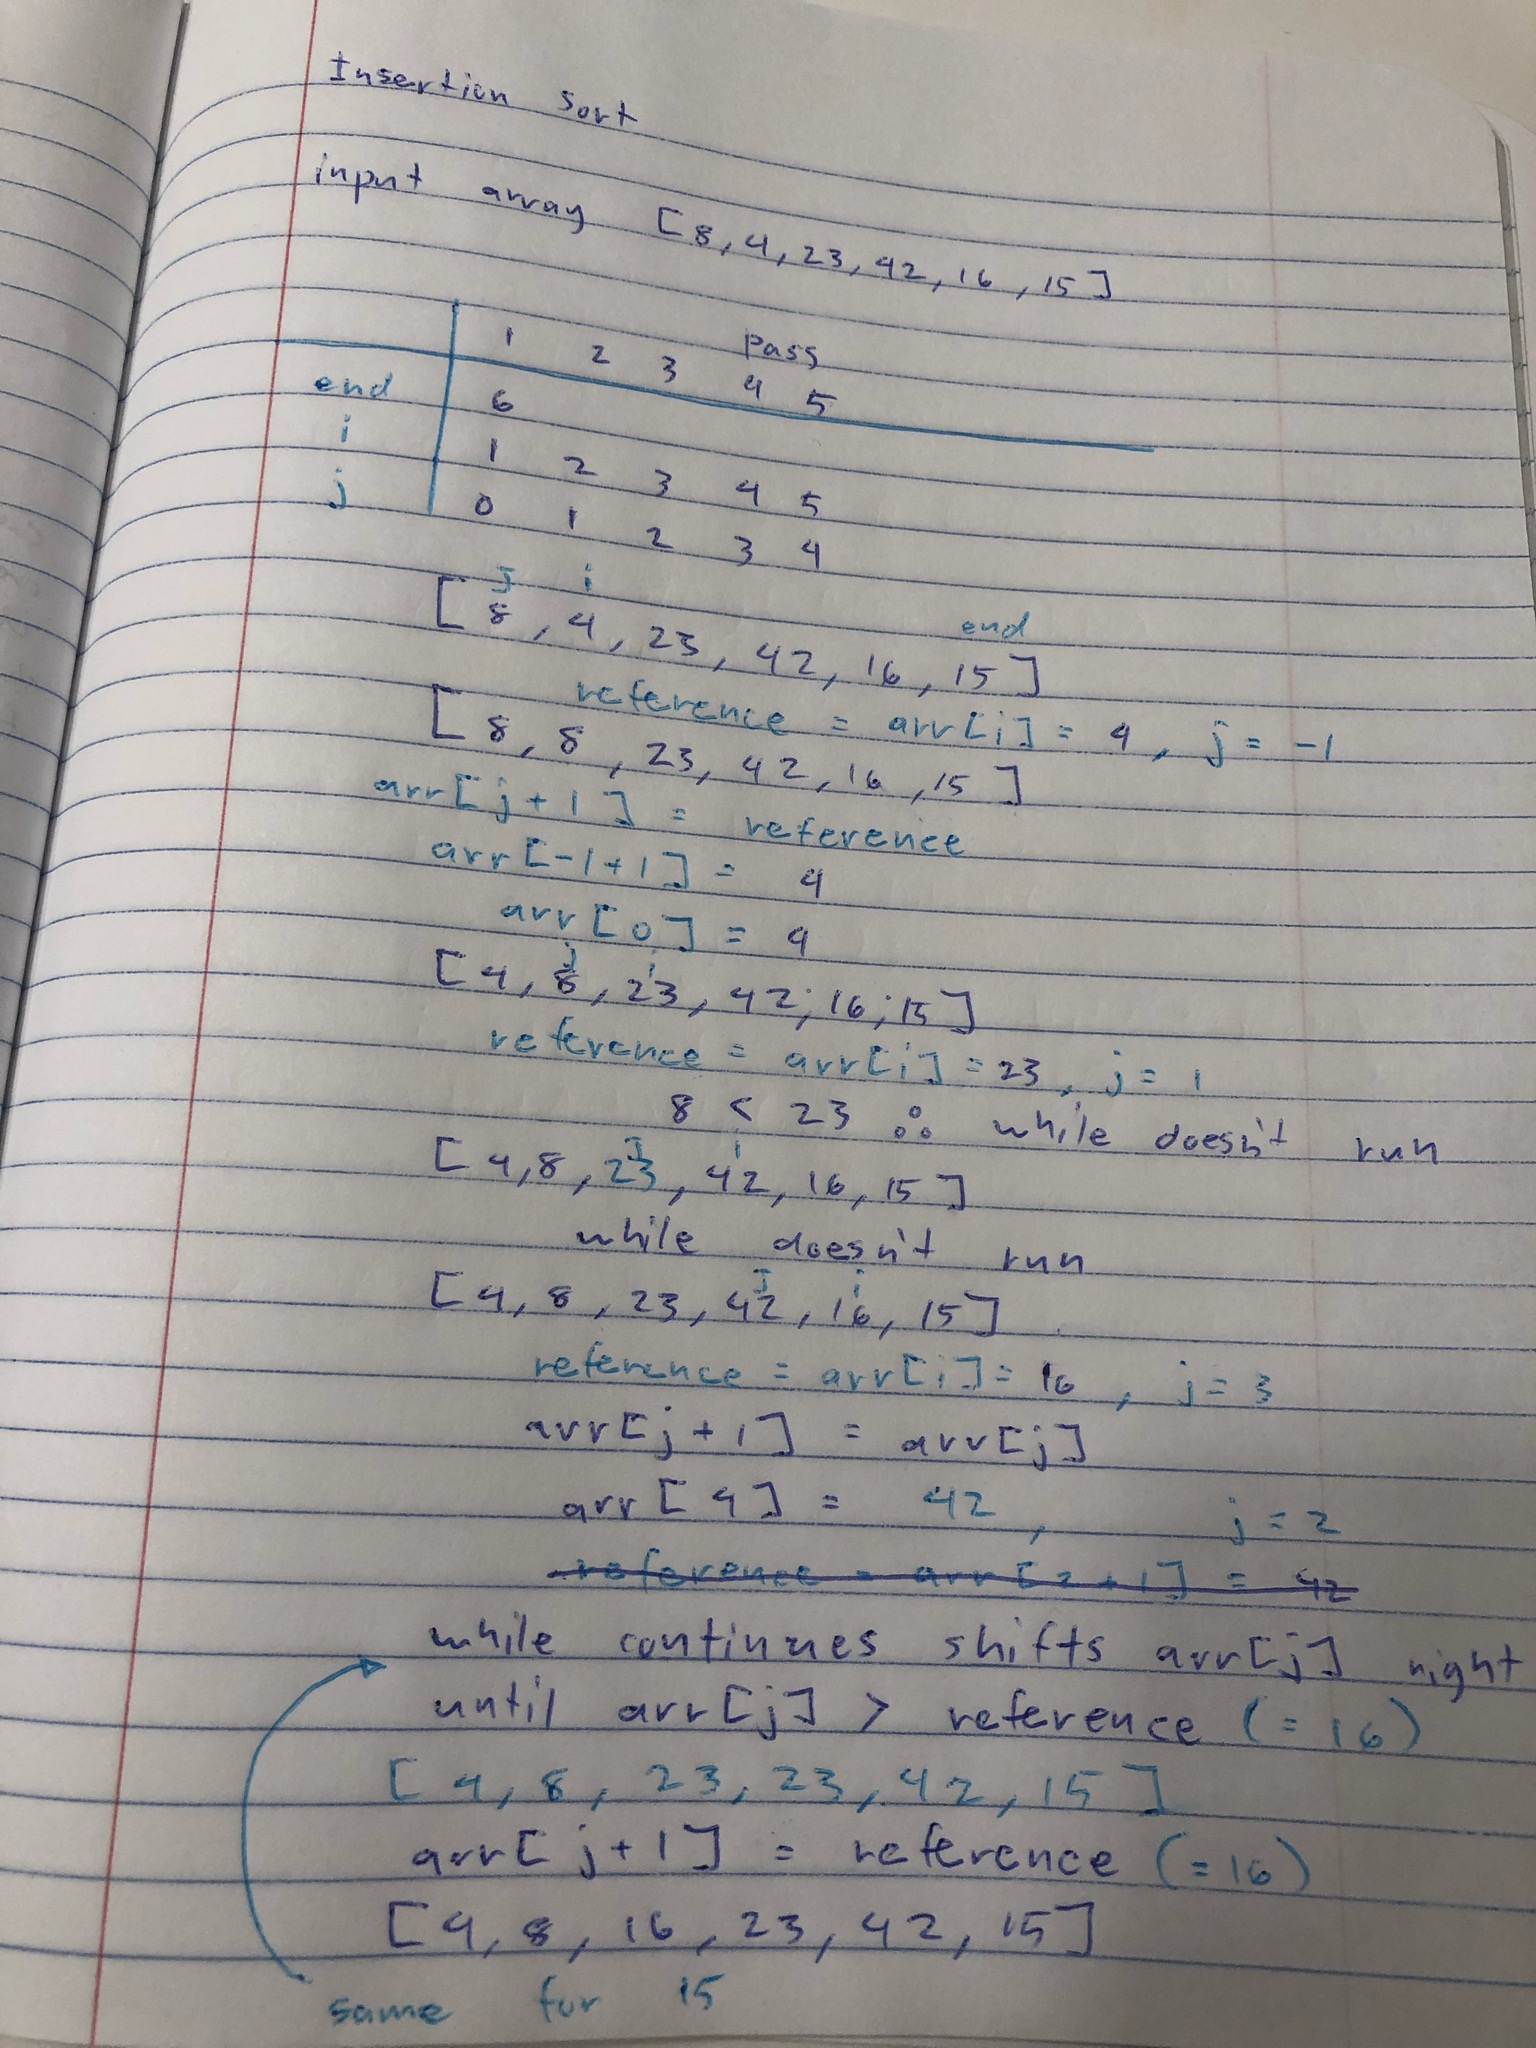 Insertion Sort
input array [8, 4, 23, 42, 16, 15]
Pass
1 2 3 4 5
end 6
i 1 2 3 4 5
j 0 1 2 3 4
j i end
[8, 4, 23, 42, 16, 15]
reference = arr[i] = 4, j = -1
[8, 8, 23, 42, 16, 15]
arr[j+1] = reference
arr[-1+1] = 4
arr[0] = 4
j i
[4, 8, 23, 42, 16, 15]
reference = arr[i] = 23, j = 1
8 < 23 ∴ while doesn't run
J i
[4, 8, 23, 42, 16, 15]
while doesn't run
J i
[4, 8, 23, 42, 16, 15]
reference = arr[i] = 16, j = 3
arr[j+1] = arr[j]
arr[4] = 42, j = 2
reference = arr[2+1] = 42
while continues shifts arr[j] right
until arr[j] > reference (=16)
[4, 8, 23, 23, 42, 15]
arr[j+1] = reference (=16)
[4, 8, 16, 23, 42, 15]
same for 15